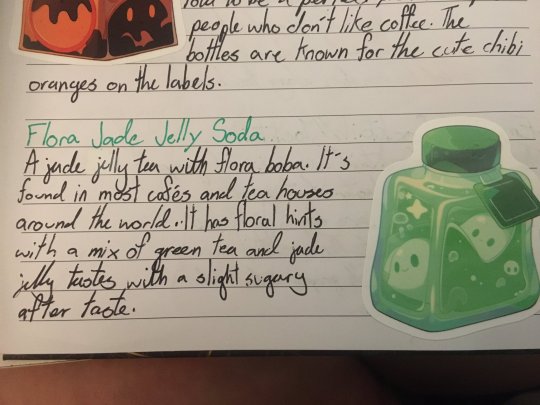 people who don't like coffee. The
bottles are known for the cute chibi
oranges on the labels.
Flora Jade Jelly Soda
A jade jelly tea with flora boba. It's
found in most cafés and tea houses
around the world. It has floral hints
with a mix of green tea and jade
jelly tastes with a slight sugary
after taste.